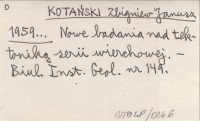 0
KOTAŃSKI Zbigniew Janusz
1959... Nowe badania nad tek-
toniką serii wierchowej. —
Biul. Inst. Geol. nr 149.